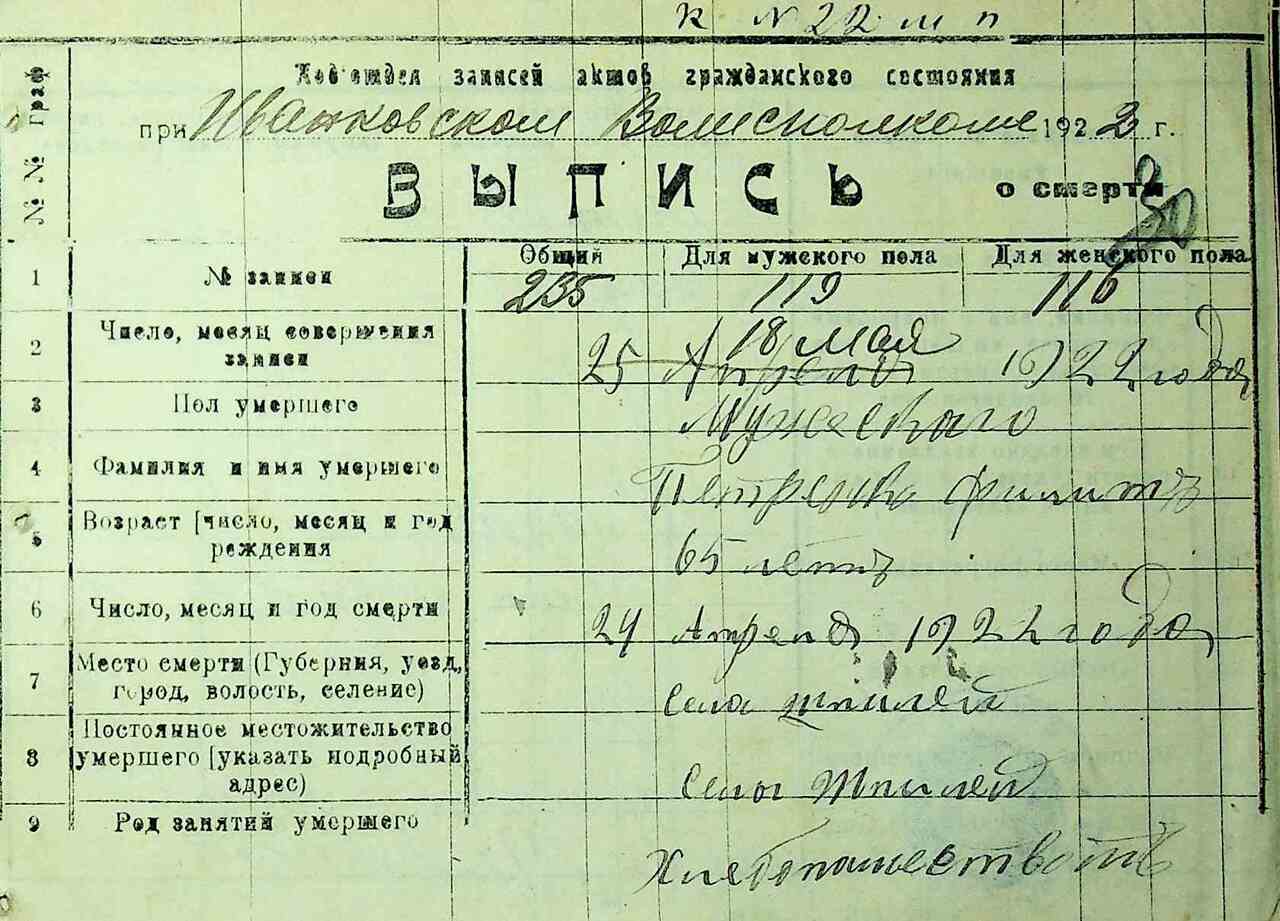 к № 22 м п
Подотдел записей актов гражданского состояния
при Иванковском Волисполкоме 1922 г.
№ № граф
ВЫПИСЬ о смерти
30
Общий Для мужского пола Для женского пола
1 № записи 235 119 116
18 мая
2 Число, месяц совершения записи 25 Апреля 1922 года
3 Пол умершего Мужеского
4 Фамилия и имя умершего Петренко Филипъ
5 Возраст [число, месяц и год рождения 65 летъ
6 Число, месяц и год смерти 24 Апреля 1922 года
7 Место смерти (Губерния, уезд, город, волость, селение) Села Шпилей
8 Постоянное местожительство умершего [указать подробный адрес) Села Шпилей
9 Род занятий умершего